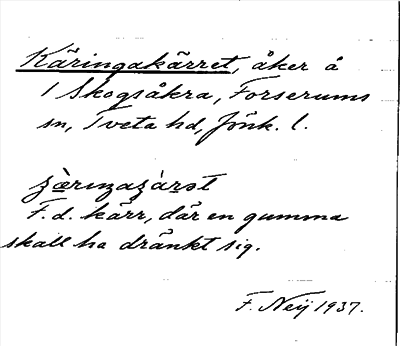 Käringakärret, åker å
1 Skogsåkra, Forserums
sn, Tveta hd, Jönk. l.
F. d. kärr, där en gumma
skall ha dränkt sig.
F. Neij 1937.